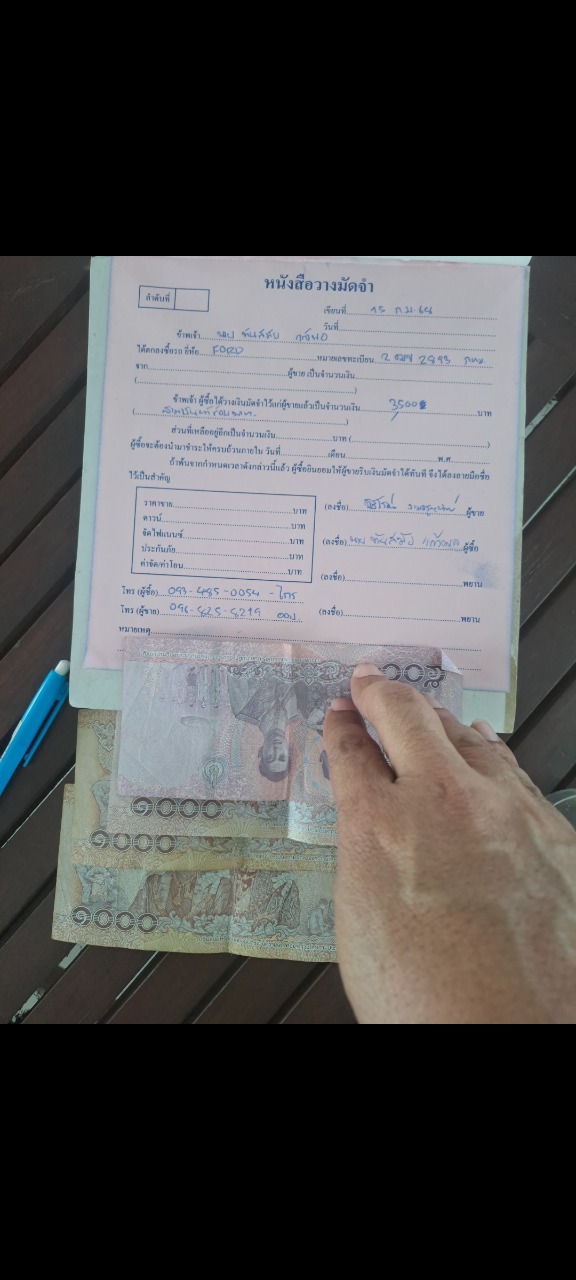 หนังสือวางมัดจำ
ลำดับที่
เขียนที่ 15 ก.พ. 64
วันที่
ข้าพเจ้า นาย
ได้ตกลงซื้อรถ ยี่ห้อ FORD หมายเลขทะเบียน 2 2893 กทม.
จาก ผู้ขาย เป็นจำนวนเงิน
( )
ข้าพเจ้า ผู้ซื้อได้วางเงินมัดจำไว้แก่ผู้ขายแล้วเป็นจำนวนเงิน 3,500 บาท
(สามพันห้าร้อยบาท )
ส่วนที่เหลืออยู่อีกเป็นจำนวนเงิน บาท ( )
ผู้ซื้อจะต้องนำมาชำระให้ครบถ้วนภายใน วันที่ เดือน พ.ศ.
ถ้าพ้นจากกำหนดเวลาดังกล่าวนี้แล้ว ผู้ซื้อยินยอมให้ผู้ขายริบเงินมัดจำได้ทันที จึงได้ลงลายมือชื่อ
ไว้เป็นสำคัญ
ราคาขาย บาท
ดาวน์ บาท
จัดไฟแนนซ์ บาท
ประกันภัย บาท
ค่าจัด/ค่าโอน บาท
(ลงชื่อ) ผู้ขาย
(ลงชื่อ) นาย ผู้ซื้อ
(ลงชื่อ) พยาน
โทร (ผู้ซื้อ) 093-485-0054 - ไกร
โทร (ผู้ขาย) 096-825-8219
(ลงชื่อ) พยาน
หมายเหตุ
๑๐๐๐
๑๐๐๐
๑๐๐๐